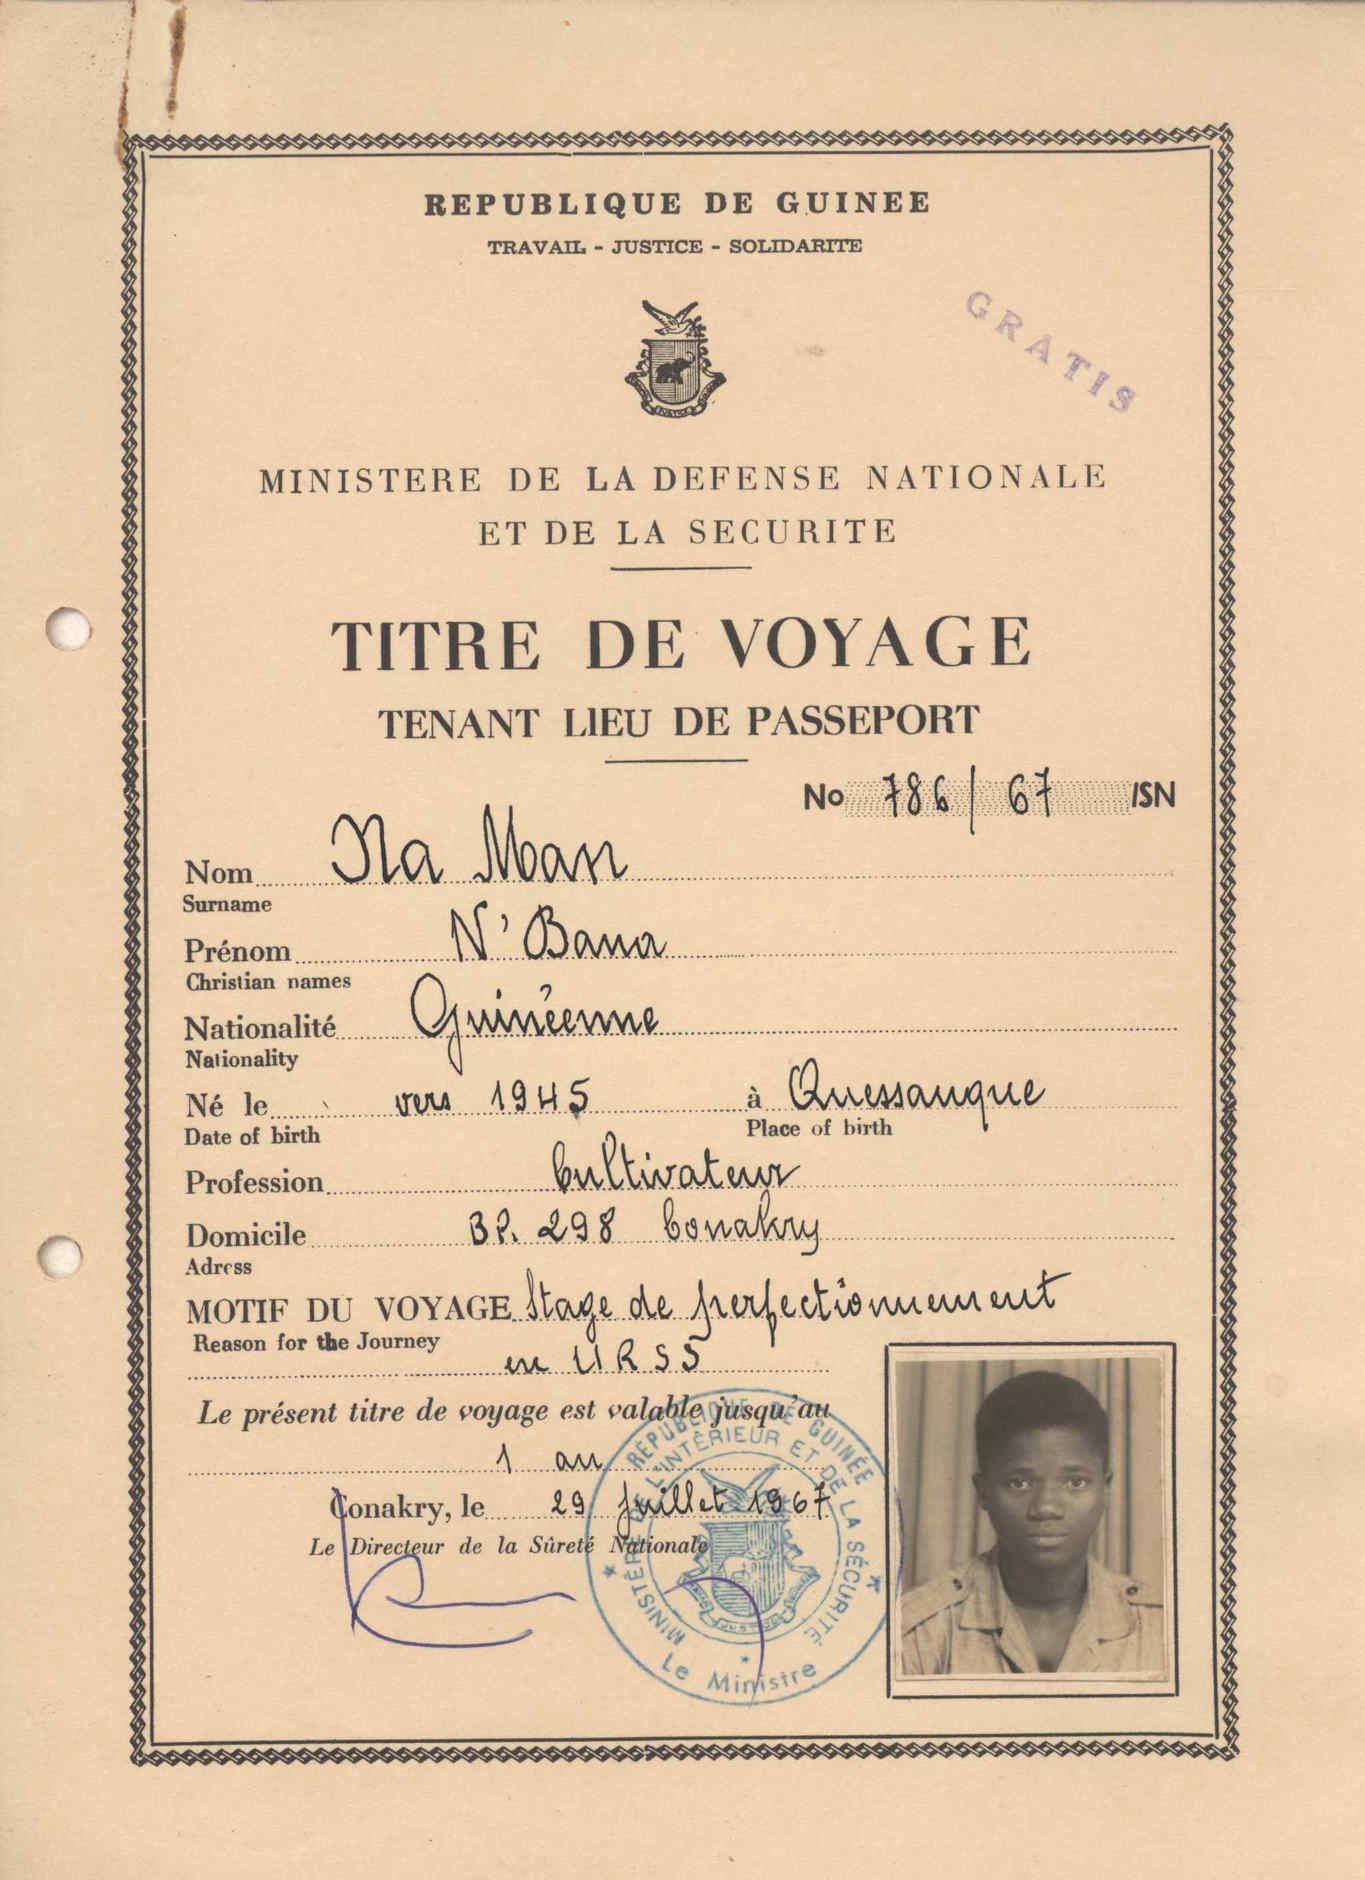 REPUBLIQUE DE GUINEE
TRAVAIL - JUSTICE - SOLIDARITE
GRATIS
MINISTERE DE LA DEFENSE NATIONALE
ET DE LA SECURITE
TITRE DE VOYAGE
TENANT LIEU DE PASSEPORT
No 786/67 /SN
Nom Na Man
Surname
Prénom N'Bana
Christian names
Nationalité Guinéenne
Nationality
Né le vers 1945 à Quessangue
Date of birth Place of birth
Profession Cultivateur
Domicile BP. 298 Conakry
Adress
MOTIF DU VOYAGE Stage de perfectionnement
Reason for the Journey
en URSS
Le présent titre de voyage est valable jusqu'au
1 an
Conakry, le 29 Juillet 1967
Le Directeur de la Sûreté Nationale
RÉPUBLIQUE DE GUINÉE
MINISTÈRE DE L'INTÉRIEUR ET DE LA SÉCURITÉ
Le Ministre